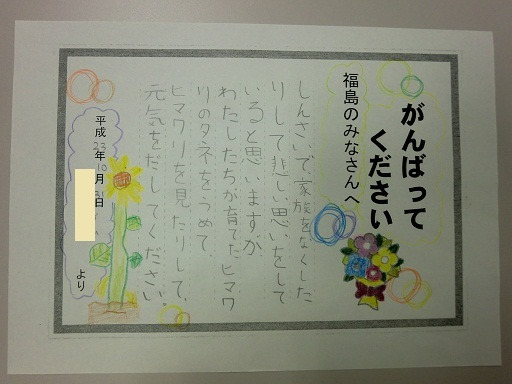 がんばって
ください
福島のみなさんへ
しんさいで、家族をなくした
りして悲しい思いをして
いると思いますが、
わたしたちが育てたヒマワ
リのタネをうめて、
ヒマワリを見たりして、
元気をだしてください。
平成23年10月31日
より